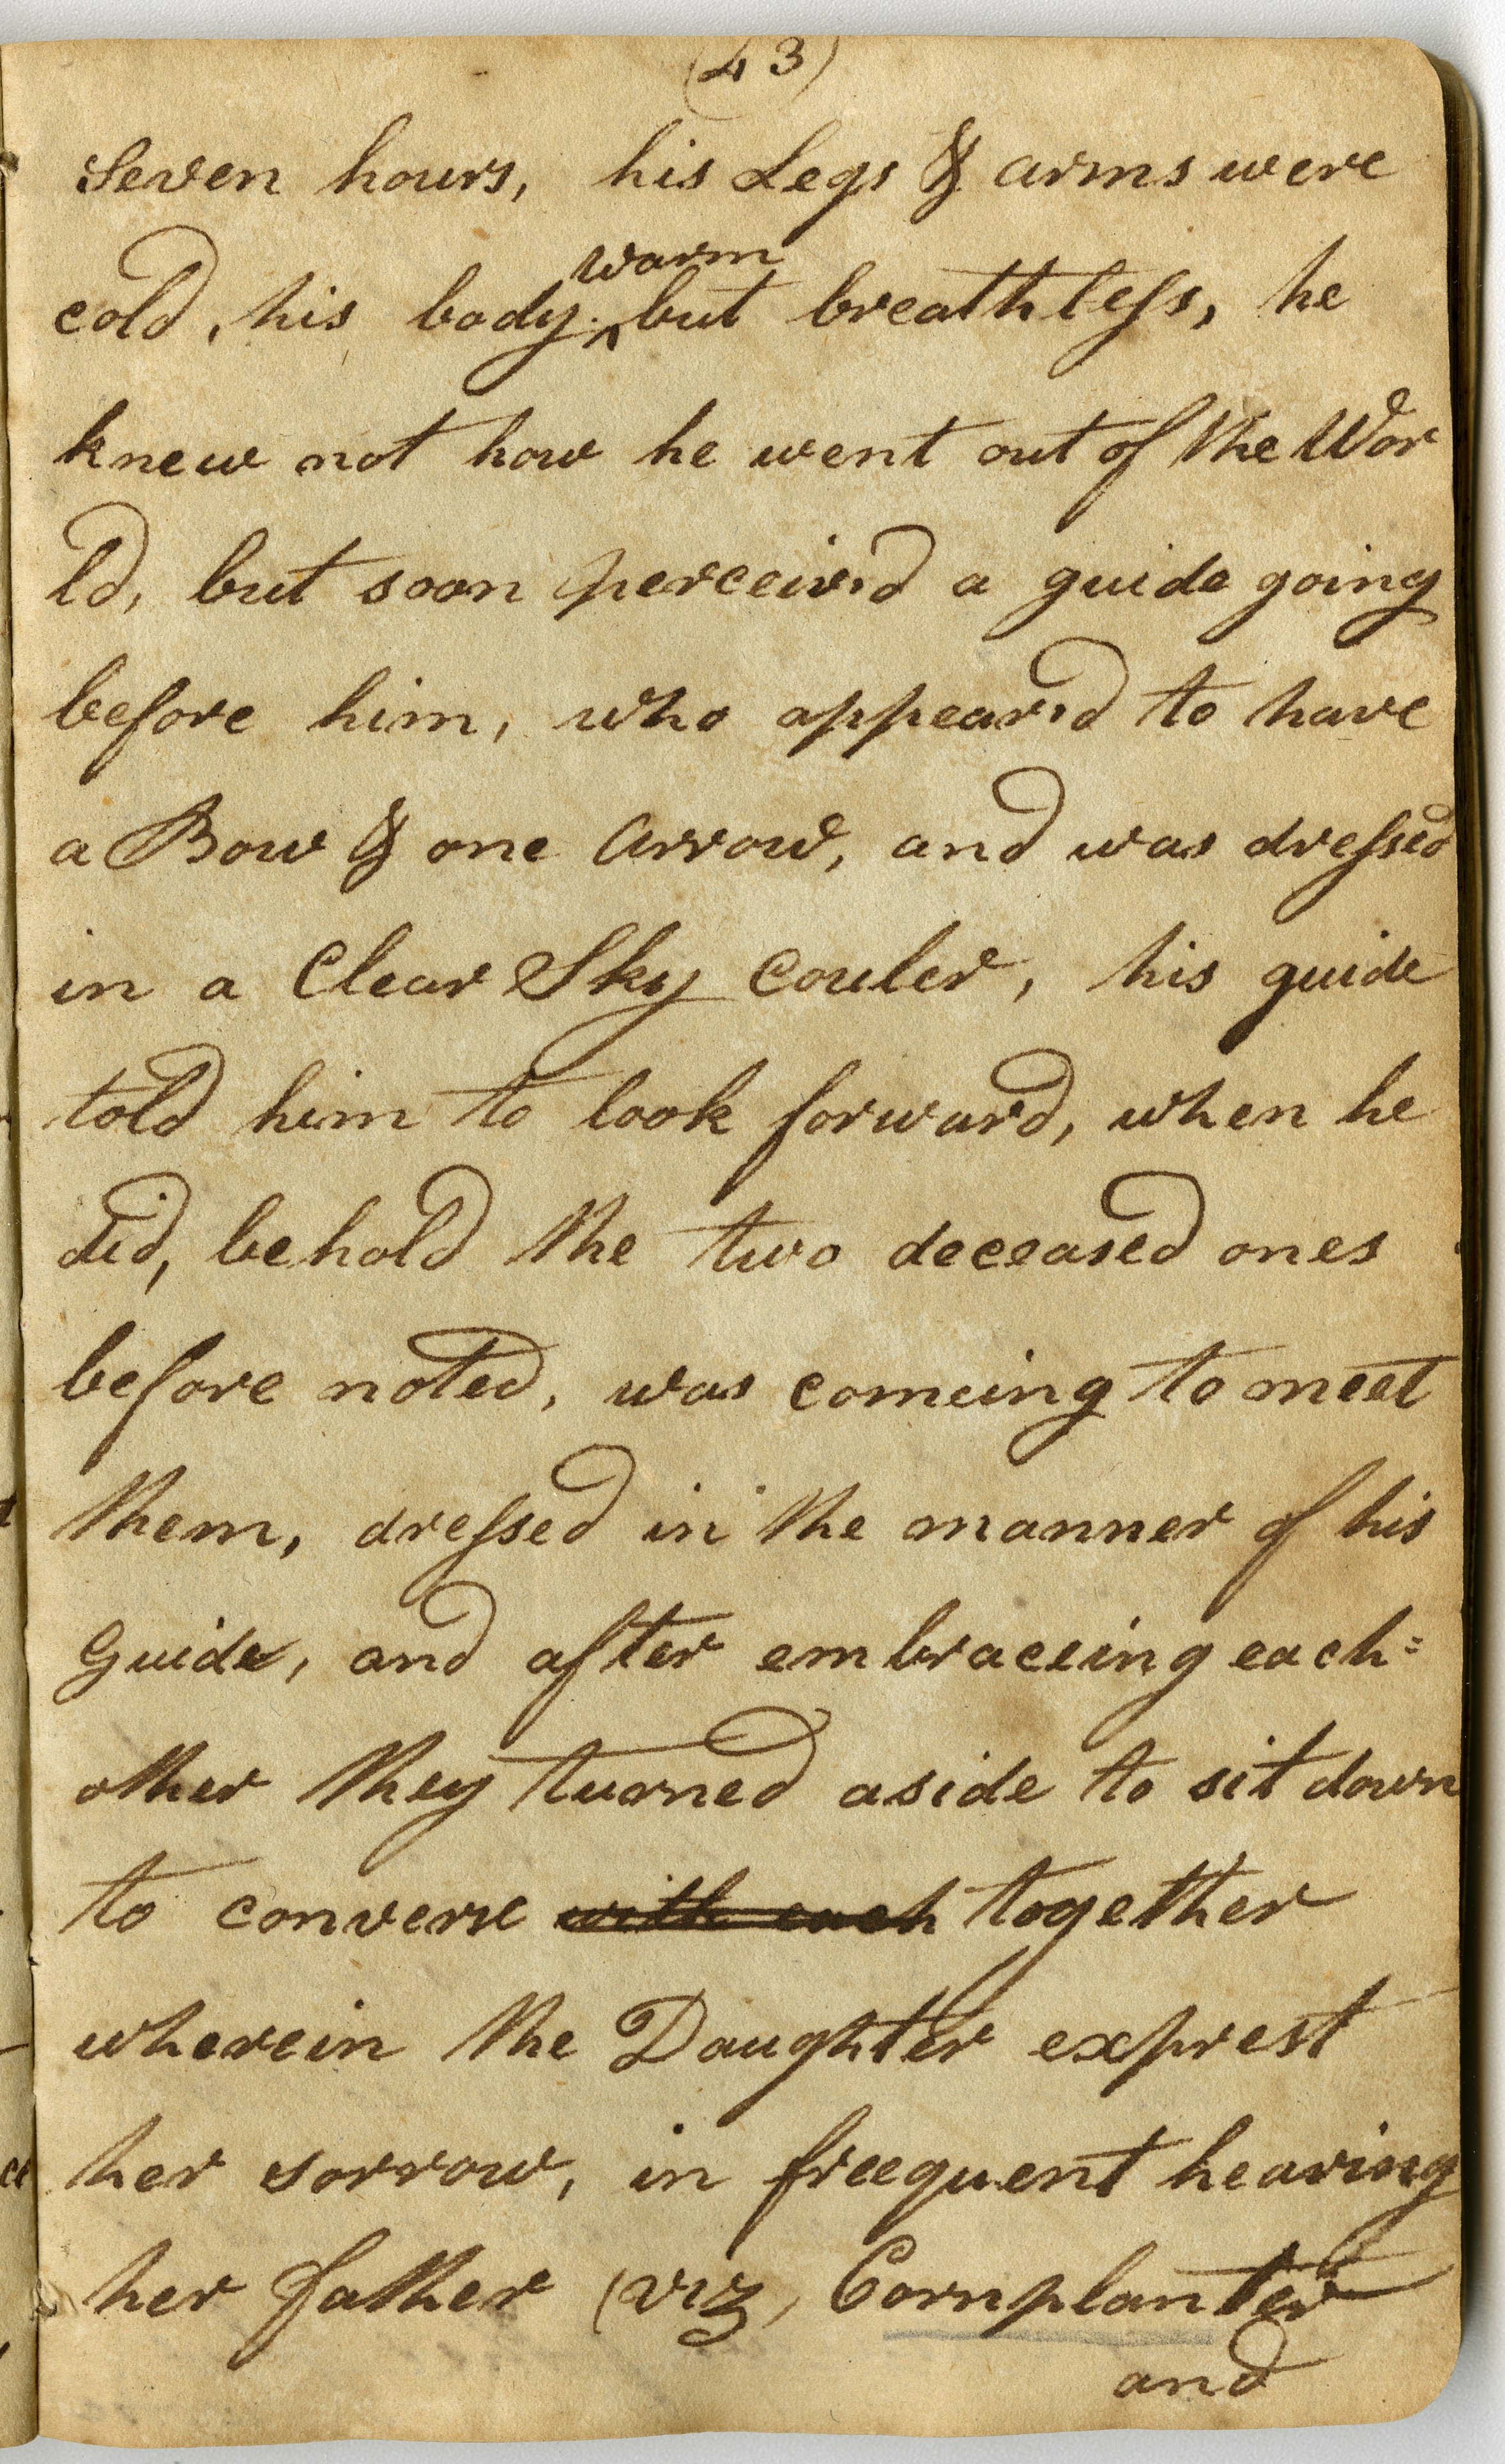 (43)
Seven hours, his Legs & arms were
warm
cold, his body ^ but breathless, he
knew not how he went out of the Wor
ld, but soon perceiv'd a guide going
before him, who appear'd to have
a Bow & one Arrow, and was dressed
in a Clear Sky Couler, his guide
told him to look forward, when he
did, behold the two deceased ones
before noted, was comeing to meet
them, dressed in the manner of his
Guide, and after embraceing each=
other they turned aside to sit down
to converse with each together
wherein the Daughter exprest
her sorrow, in freequent hearing
her father (viz, Cornplanter
and